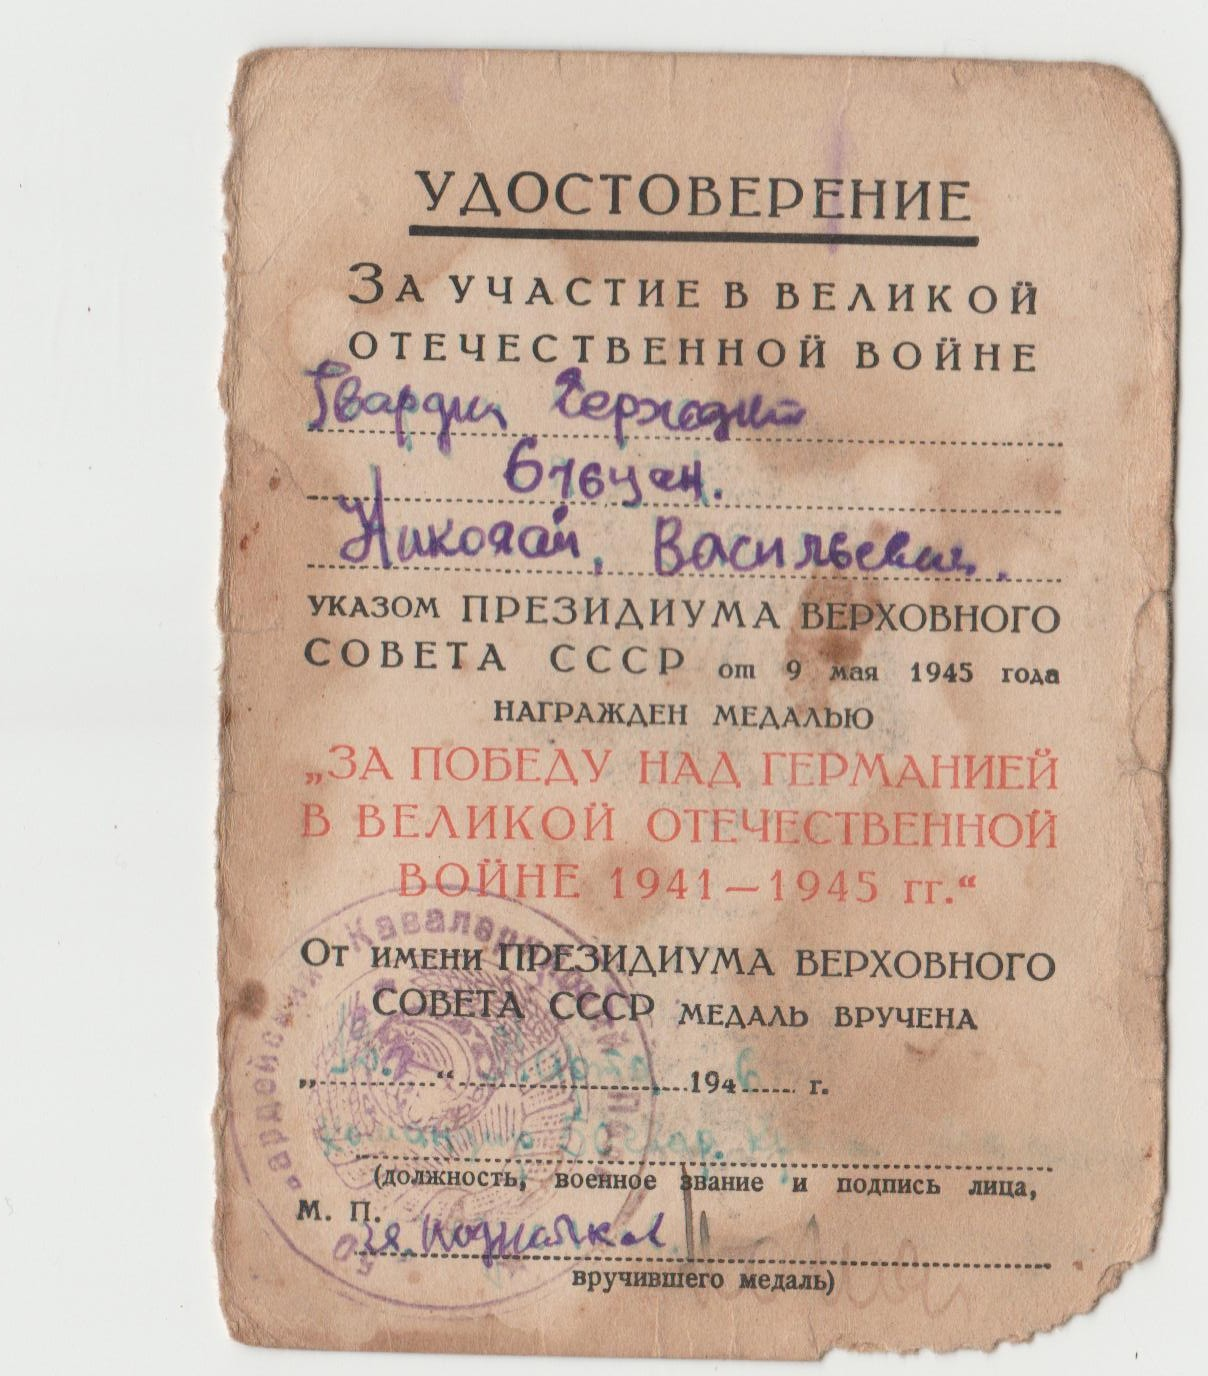 УДОСТОВЕРЕНИЕ
ЗА УЧАСТИЕ В ВЕЛИКОЙ
ОТЕЧЕСТВЕННОЙ ВОЙНЕ
Гвардии
Николай, Васильевич.
УКАЗОМ ПРЕЗИДИУМА ВЕРХОВНОГО
СОВЕТА СССР от 9 мая 1945 года
НАГРАЖДЕН МЕДАЛЬЮ
„ЗА ПОБЕДУ НАД ГЕРМАНИЕЙ
В ВЕЛИКОЙ ОТЕЧЕСТВЕННОЙ
ВОЙНЕ 1941—1945 гг.“
ОТ ИМЕНИ ПРЕЗИДИУМА ВЕРХОВНОГО
СОВЕТА СССР МЕДАЛЬ ВРУЧЕНА
„ “ 194 г.
(должность, военное звание и подпись лица,
М. П.
вручившего медаль)